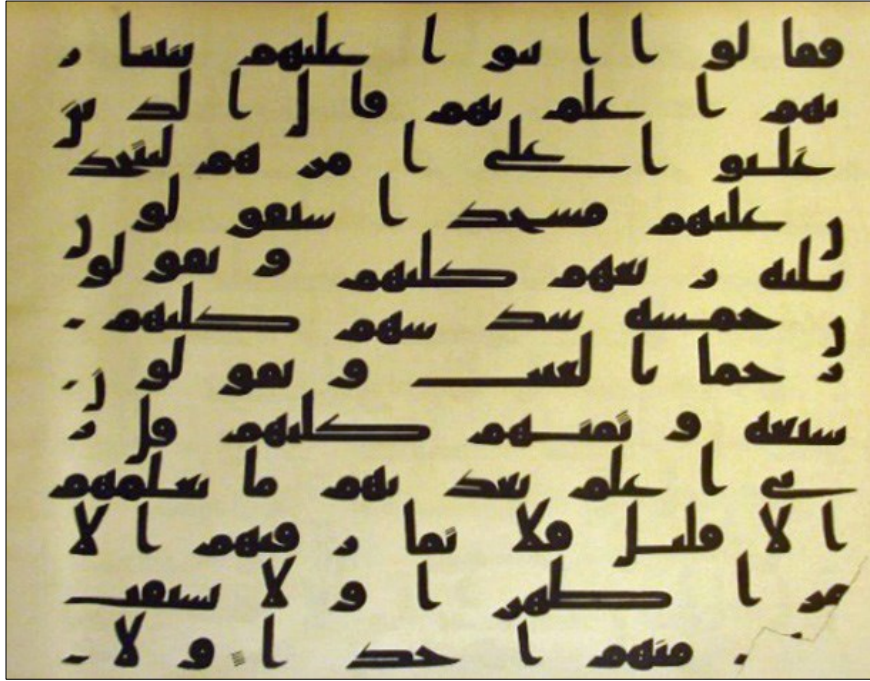 فقالوا ابنوا عليهم بنينا ر
بهم اعلم بهم قال الذين
غلبوا على امرهم لنتخذ
ن عليهم مسجدا سيقولو
ن ثلثة ر بعهم كلبهم ويقولو
ن خمسة سدسهم كلبهم ر
جما بالغيب ويقولون
سبعة وثمنهم كلبهم قل ر
بي اعلم بعدتهم ما يعلمهم
الا قليل فلا تمار فيهم الا
مرا ظهرا ولا تستفت
منهم احدا ولا